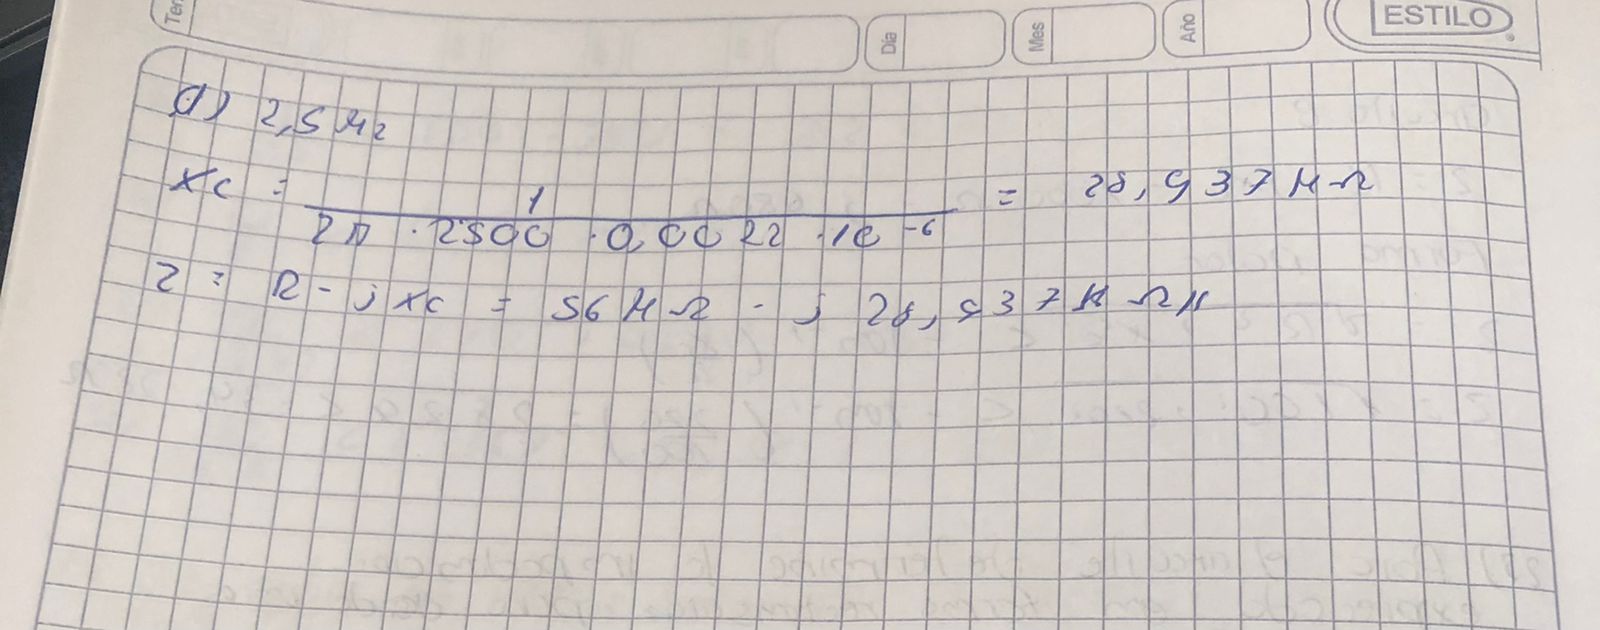 Día Mes Año ESTILO
d) 2,5 Hz
Xc = 1 / 2π · 2500 · 0,0022 · 10 -6 = 28,937 KΩ
Z = R - j Xc = 56 KΩ - j 28,937 KΩ